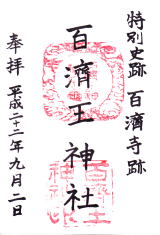 特別史跡 百濟寺跡
百濟王神社
奉拝 平成二十二年九月二日